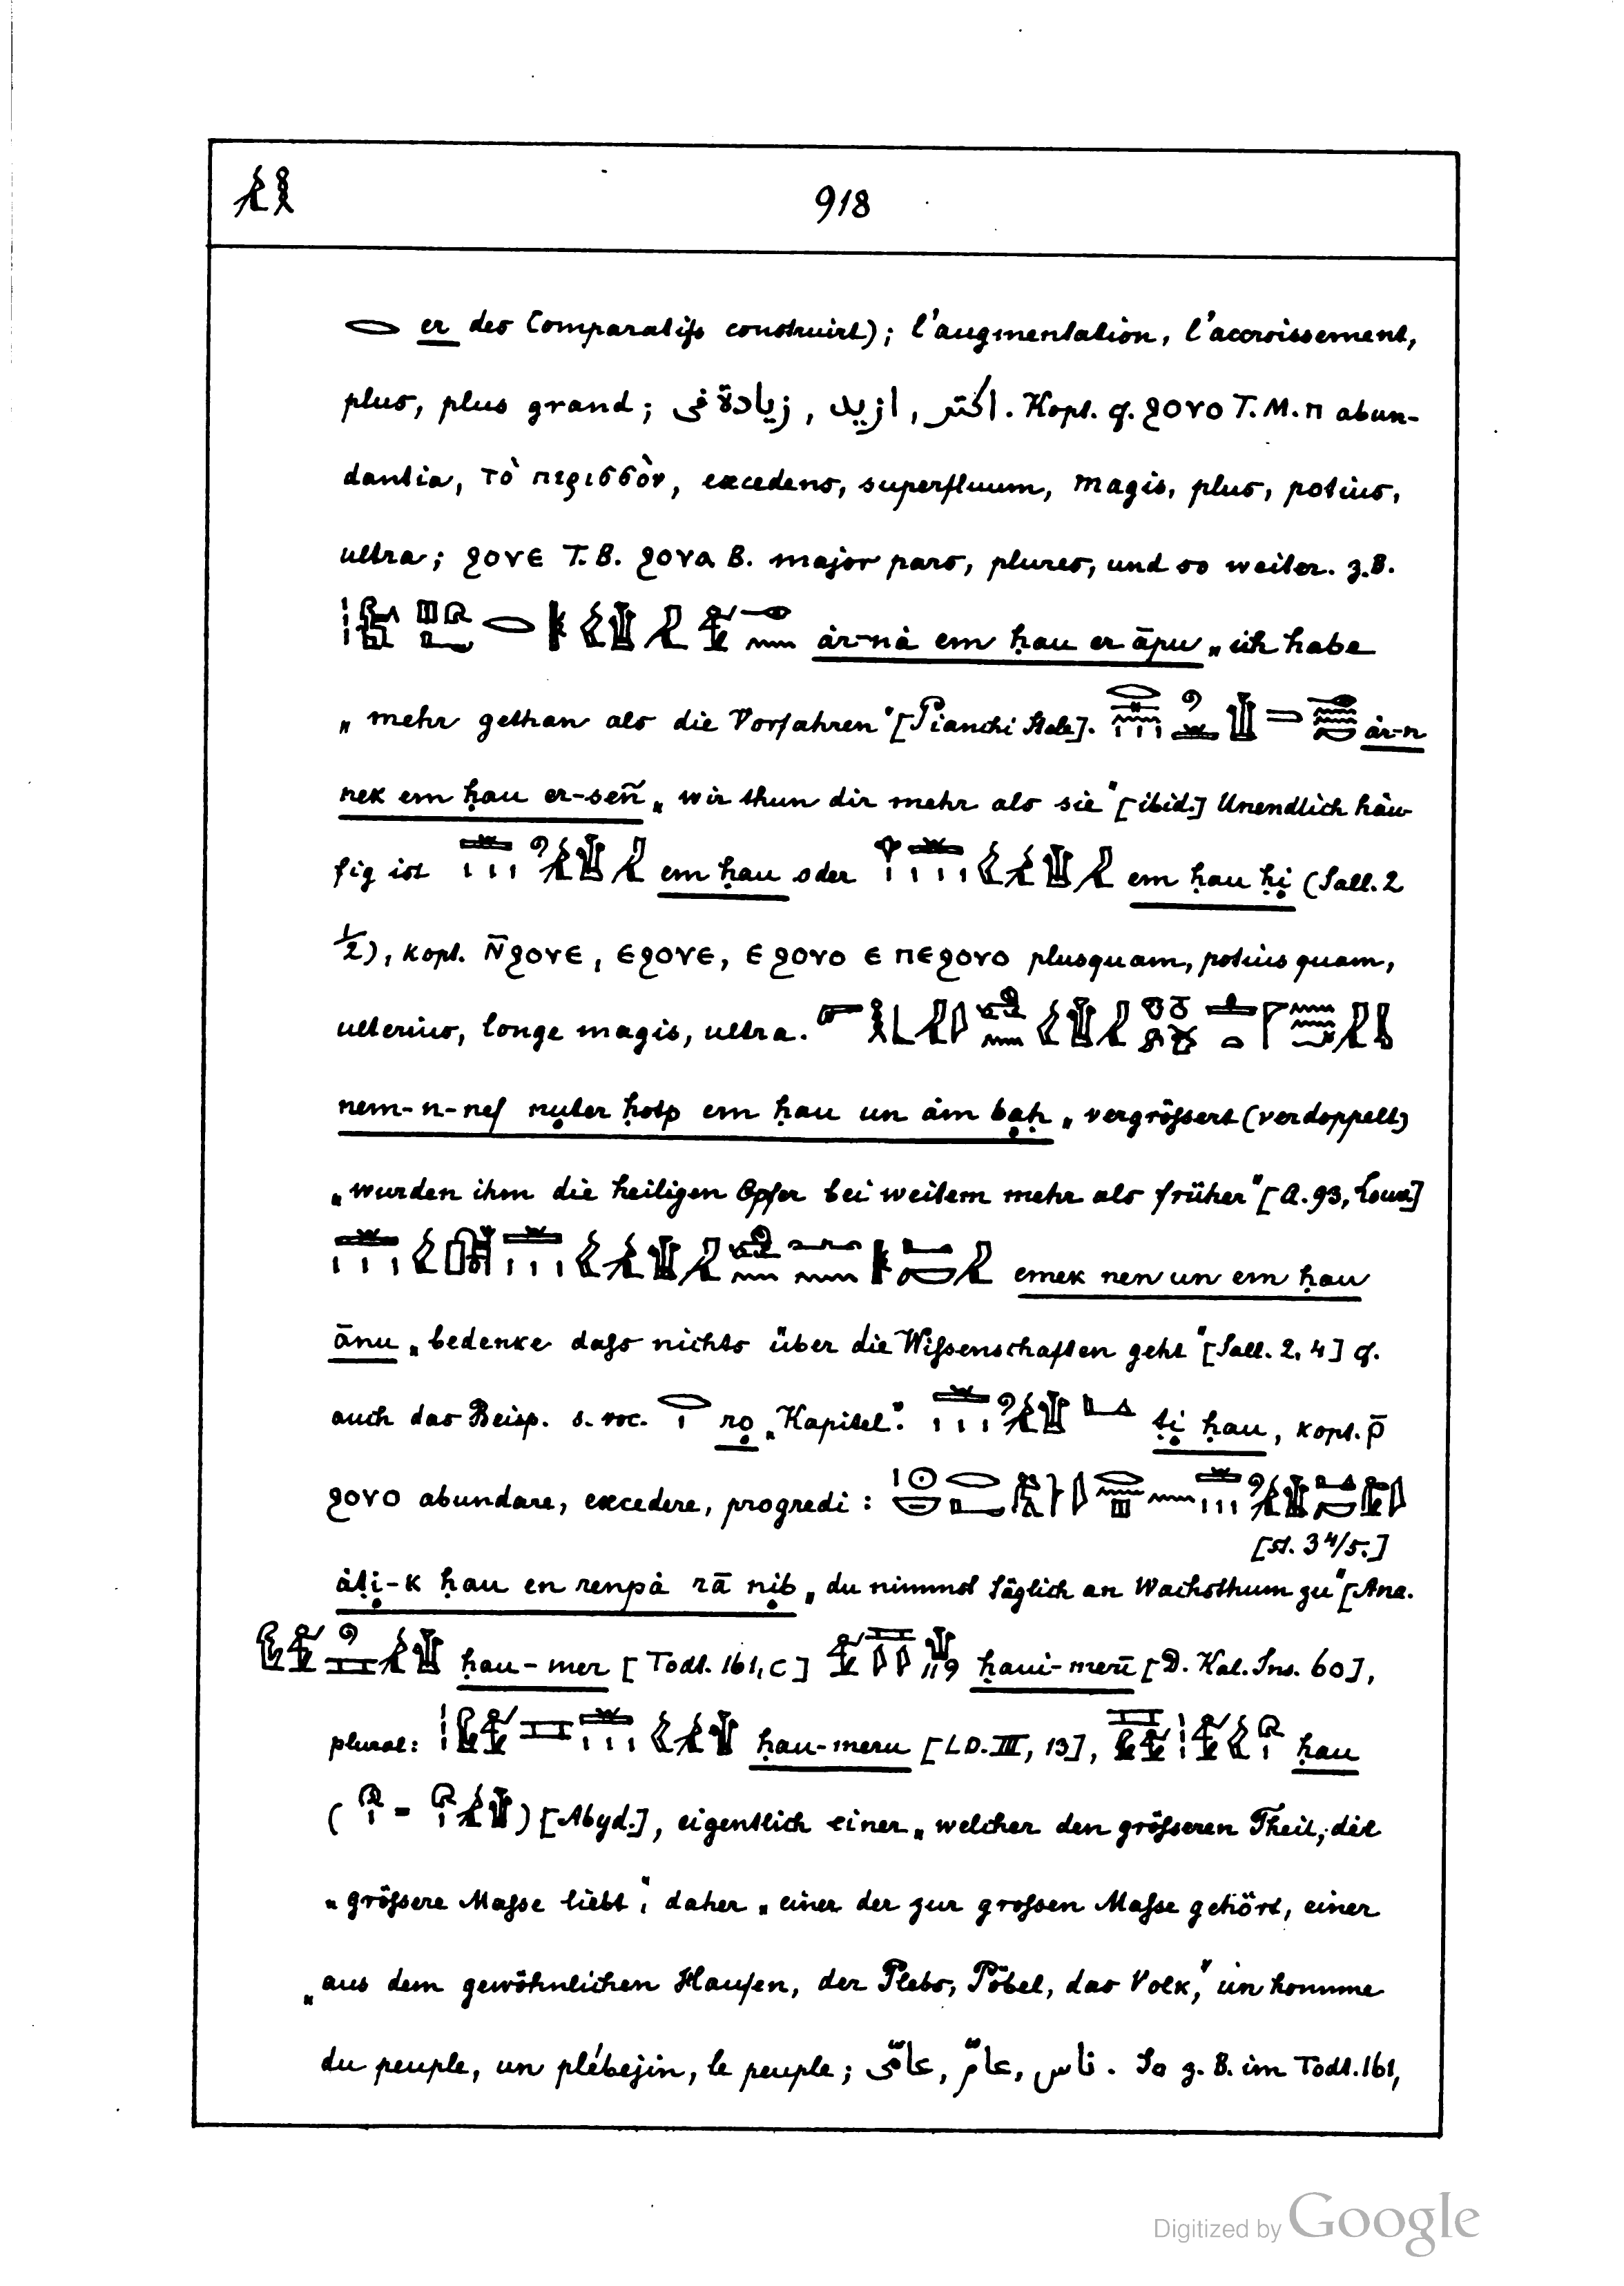 918
er des Comparatifs construirt); l'augmentation, l'accroissement,
plus, plus grand; اكتر, ازيد, زيادة فى. Kopt. cf. ϩⲟⲩⲟ T. M. ⲡ abun-
dantia, τὸ περισσὸν, excedens, superfluum, magis, plus, potius,
ultra; ϩⲟⲩⲉ T. B. ϩⲟⲩⲁ B. major pars, plures, und so weiter. z. B.
ȧr-nȧ em ḥau er āpu „ich habe
„mehr gethan als die Vorfahren" [Pianchi Stele]. ȧr-n
nek em ḥau er-sen̄ „wir thun dir mehr als sie" [ibid.] Unendlich häu-
fig ist em ḥau oder em ḥau ḥị (Sall. 2
1/2), kopt. ⲛ̄ϩⲟⲩⲉ, ⲉϩⲟⲩⲉ, ⲉ ϩⲟⲩⲟ ⲉ ⲡⲉϩⲟⲩⲟ plusquam, potius quam,
ulterius, longe magis, ultra.
nem-n-nef nụter ḥotp em ḥau un ȧm bạḥ „vergrößert (verdoppelt)
„wurden ihm die heiligen Opfer bei weitem mehr als früher" [A. 93, Louv.]
emek nen un em ḥau
ānu „bedenke daß nichts über die Wißenschaften geht" [Sall. 2, 4] cf.
auch das Beisp. s. voc. rọ „Kapitel". ṭị ḥau, kopt. ⲣ̄
ϩⲟⲩⲟ abundare, excedere, progredi:
[st. 3 4/5.]
ȧṭị-k ḥau en renpȧ rā nịb „du nimmst täglich an Wachsthum zu" [Ana.
ḥau-mer [Todt. 161, c] ḥaui-merū [D. Kal. Ins. 60],
plural: ḥau-meru [LD. III, 13], ḥau
( = ) [Abyd.], eigentlich einer „welcher den größeren Theil, die
„größere Maße liebt", daher „einer der zur großen Maße gehört, einer
„aus dem gewöhnlichen Haufen, der Plebs, Pöbel, das Volk," un homme
du peuple, un plébejin, le peuple; ناس, عامّ, عامّى. So z. B. im Todt. 161,
Digitized by Google